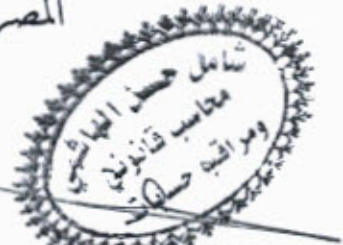 المصر
شامل حسن الهاشمي
محاسب قانوني
ومراقب حسابات